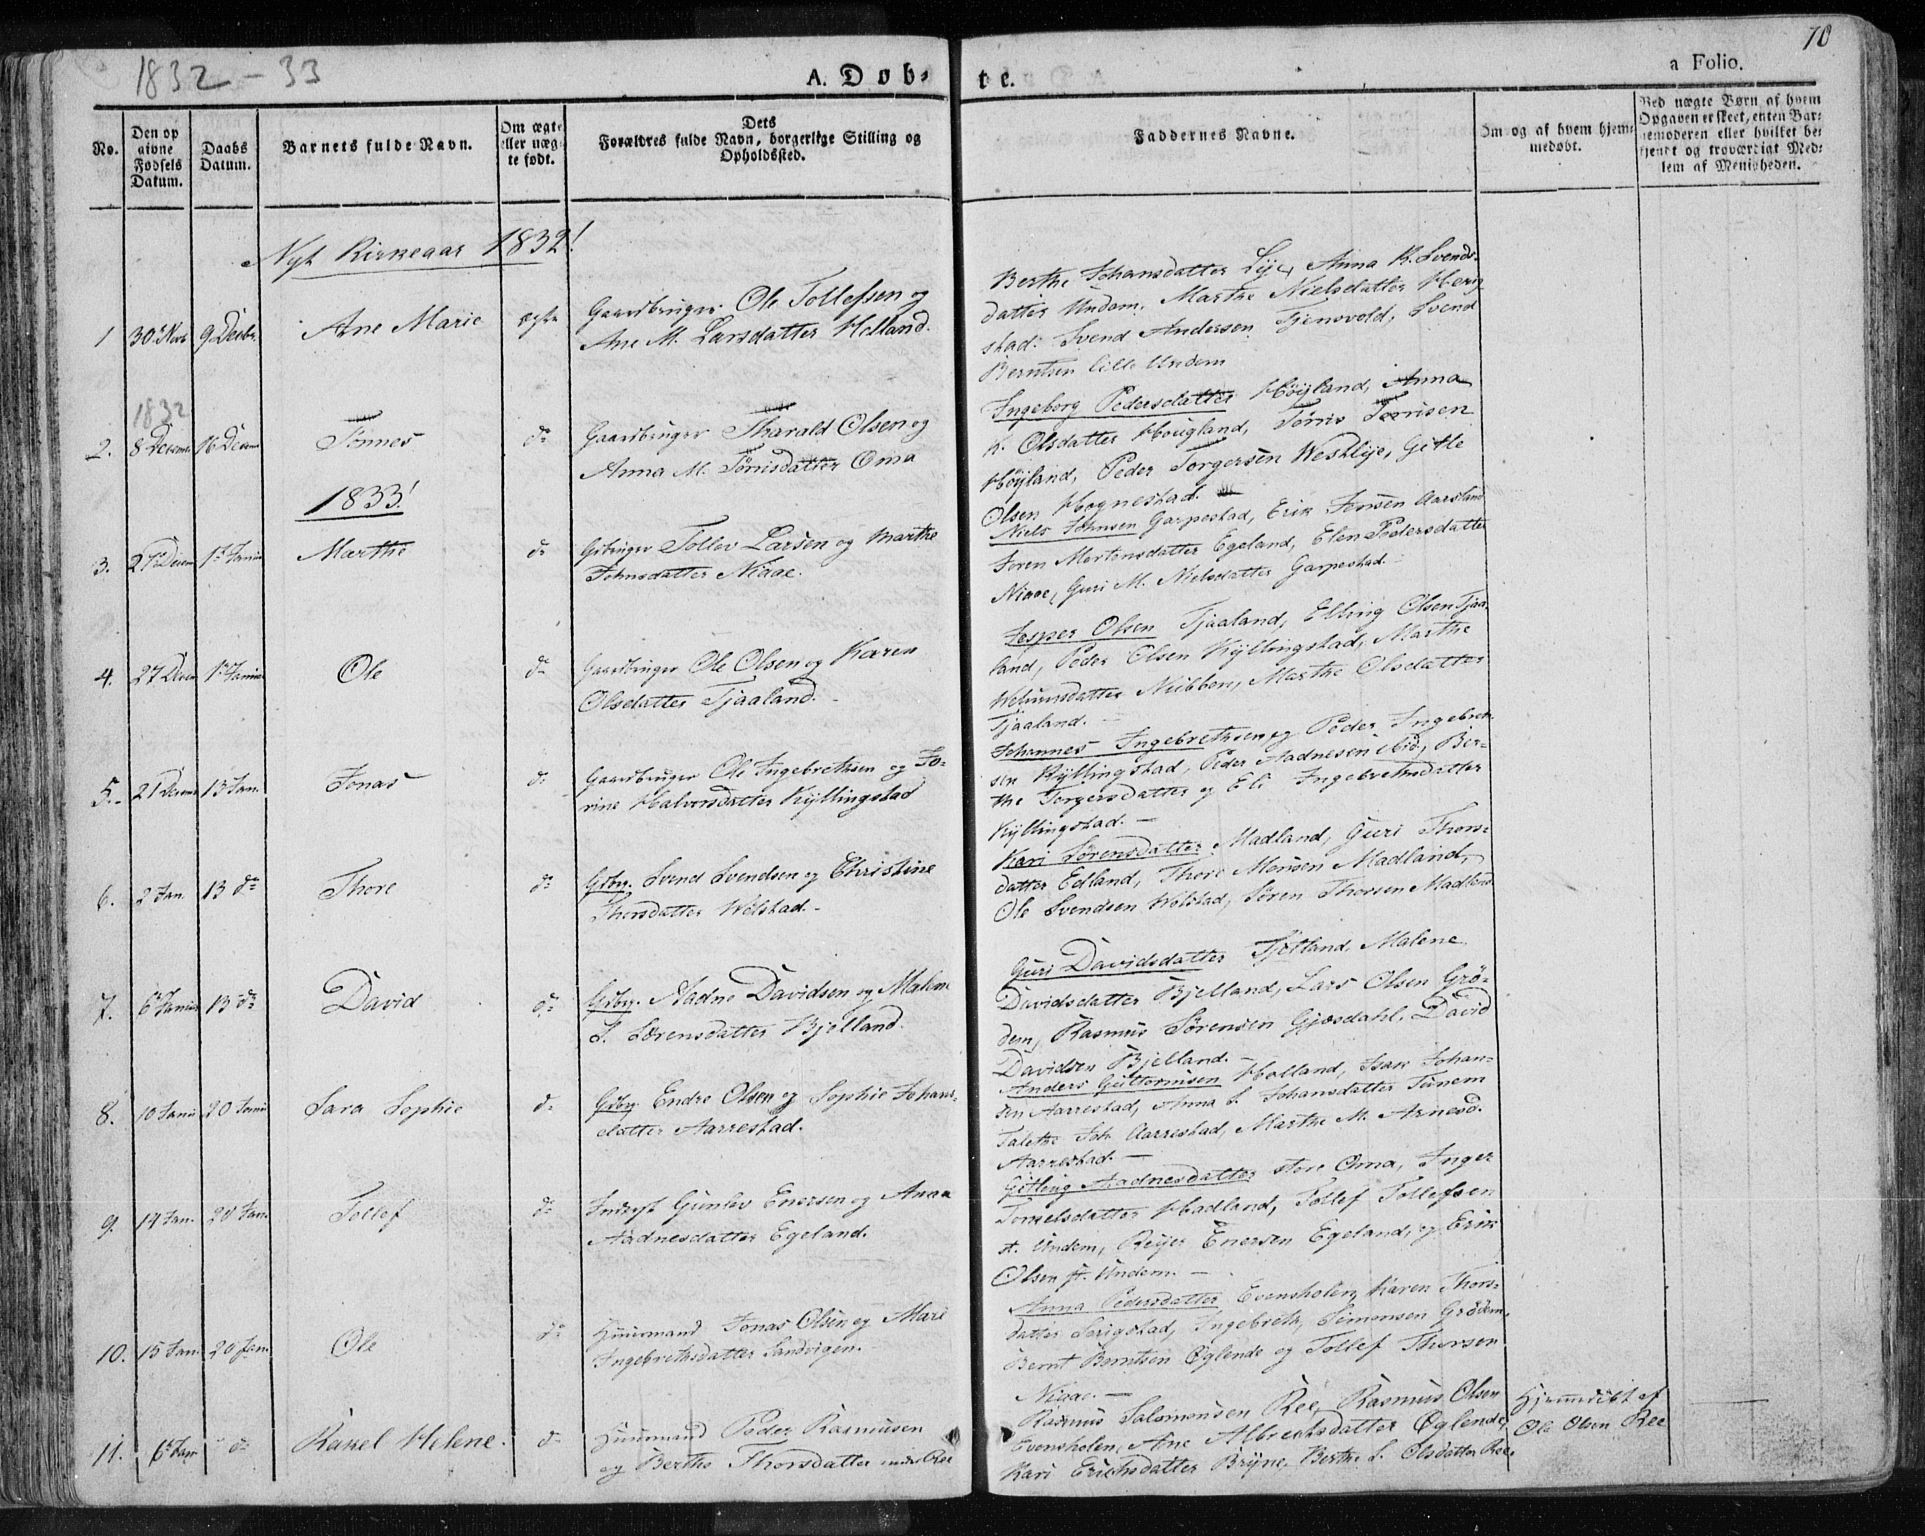 1832 - 33
A. Døb-
te.
70
a Folio.
No.
Den op
givne
Fødsels
Datum.
Daabs
Datum.
Barnets fulde Navn.
Om ægte
eller uæg-
te født.
Dets
Forældres fulde Navn, borgerlige Stilling og
Opholdssted.
Faddernes Navne.
Om og af hvem hjem-
medøbt.
Ved uægte Børn af hvem
Opgaven er skeet, enten Bar-
nemoderen eller hvilket be-
kjendt og troværdigt Med-
lem af Menigheden.
Nyt Kirkeaar 1832!
1 30 Nov 9 Decbr. Ane Marie ægte
Gaardbruger Ole Tollefsen og
Ane M. Larsdatter Helland.
Berthe Johansdatter Lye, Anna K. Svends-
datter Undem, Marthe Nielsdatter Hern
stad. Svend Andersen Tjensvold, Svend
Berntsen Lille Undem
1832
2. 8 Decem 16 Decem Tønnes do
Gaardbruger Tharald Olsen og
Anna M. Tønisdatter Oma
Ingeborg Pedersdatter Høyland, Anna
K. Olsdatter Hougland, Tønis Tønisen
Høyland, Peder Torgersen Westlye, Gitle
Olsen Hognestad.
1833!
3. 27 Decem 1 Januar Marthe do
Gbruger Tollev Larsen og Marthe
Johnsdatter Niaae.
Niels Johnsen Garpestad, Erik Jensen Aarsland
Søren Mortensdatter Egeland, Elen Pedersdatter
Niaae, Guri M. Nielsdatter Garpestad.
4. 27 Decem 1 Januar Ole do
Gaardbruger Ole Olsen og Karen
Olsdatter Tjaaland.
Jesper Olsen Tjaaland, Elling Olsen Tjaa-
land, Peder Olsen Kyllingstad, Marthe
Nubben, Marthe Olsdatter
Tjaaland.
5. 21 Decem 13 Jan. Jonas do
Gaardbruger Ole Ingebretsen og Jo-
rine Halvorsdatter Kyllingstad
Johannes Ingebretsen og Peder Ingebret-
sen Kyllingstad, Peder Aadnesen ibid, Ber-
the Torgersdatter og Eli Ingebretsdatter
Kyllingstad.
6. 2 Jan 13 do Thore do
Gdbrg. Svend Svendsen og Christine
Thorsdatter Wølstad.
Kari Sørensdatter Madland, Guri Thors-
datter Edland, Thore Monsen Madland,
Ole Svendsen Wølstad, Søren Thorsen Madland
7. 6 Januar 13 do David do
Gdbrg. Aadne Davidsen og Malene
S. Sørensdatter Bjelland.
Guri Davidsdatter Tjøtland, Malene
Davidsdatter Bjelland, Lars Olsen Grø-
dem, Rasmus Sørensen Gjesdahl, David
Davidsen Bjelland.
8. 10 Janu 20 Janu Sara Sophie do
Gdbrg. Endre Olsen og Sophie Johans-
datter Aarrestad.
Anders Guttormsen Holland, Isak Johan-
sen Aarrestad, Anna S. Johansdatter Tunem
Talethe Joh. Aarrestad, Marthe M. Arnesd.
Aarrestad.
9. 14 Jan. 20 Jan. Tollef do
Inderst Gunlev Enersen og Anna
Aadnesdatter Egeland.
Gitleug Aadnesdatter store Oma, Inger
Tonnelsdatter Hadland, Tollef Tollefsen
st. Undem, Reyer Enersen Egeland, og Erik
Olsen st. Undem.
10. 15 Jan. 20 Jan. Ole do
Huusmand Jonas Olsen og Mari
Ingebretsdatter Sandvigen.
Anna Pedersdatter Evensholen, Karen Thors-
datter Serigstad, Ingebreth Simonsen Grødem,
Bernt Berntsen Øglende og Tollef Thorsen
Niaae.
11. 6 Jan do Rakel Helene. do
Huusmand Peder Rasmussen
og Berthe Thorsdatter under Ree
Rasmus Salomonsen Ree, Rasmus Olsen
Evensholen, Ane Albrechtsdatter Øglende,
Kari Erichsdatter Bryne, Berthe S. Olsdatter Ree.
Hjemmedøbt af
Ole Olsen Ree